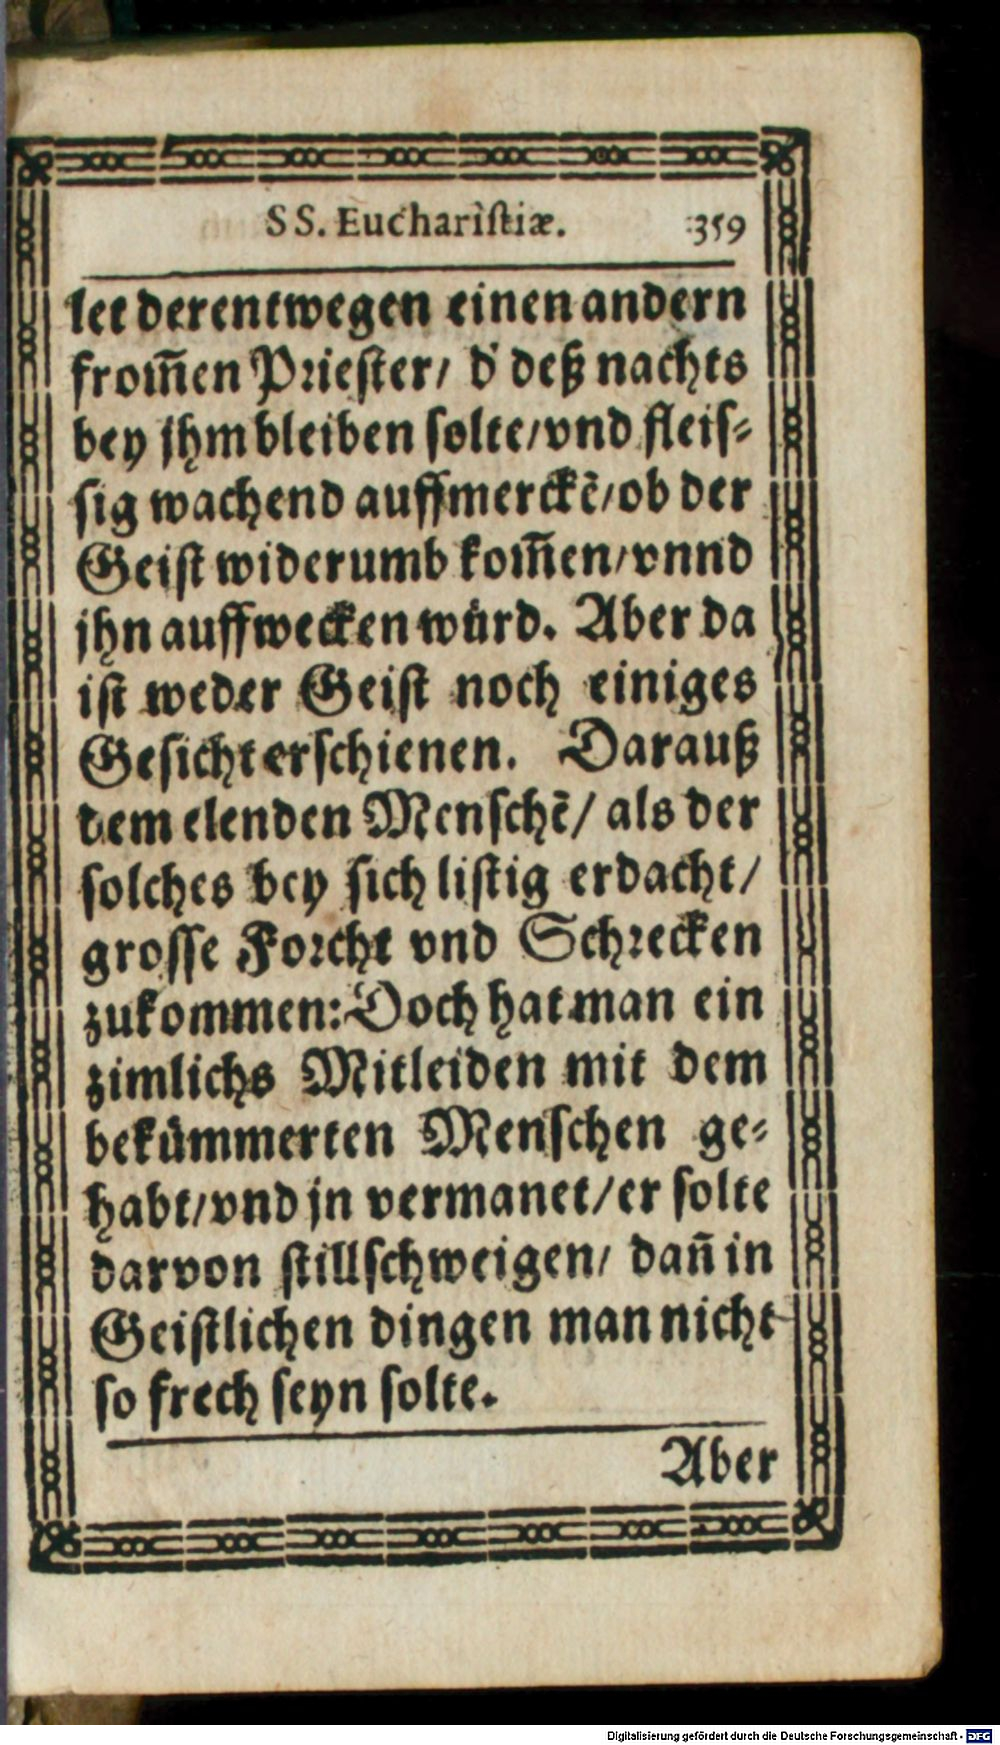 SS. Euchariſtiæ. 359
let derentwegen einen andern
from̅en Prieſter/ d' deß nachts
bey jhm bleiben ſolte/vnd fleiſ⸗
ſig wachend auffmerckẽ/ob der
Geiſt widerumb kom̅en/vnnd
jhn auffwecken würd. Aber da
iſt weder Geiſt noch einiges
Geſicht erſchienen. Darauß
dem elenden Menſchẽ/ als der
ſolches bey ſich liſtig erdacht/
groſſe Forcht vnd Schrecken
zukommen: Doch hat man ein
zimlichs Mitleiden mit dem
bekümmerten Menſchen ge⸗
habt/vnd jn vermanet/er ſolte
darvon ſtillſchweigen/ dan̅ in
Geiſtlichen dingen man nicht
ſo frech ſeyn ſolte.
Aber
Digitalisierung gefördert durch die Deutsche Forschungsgemeinschaft - DFG